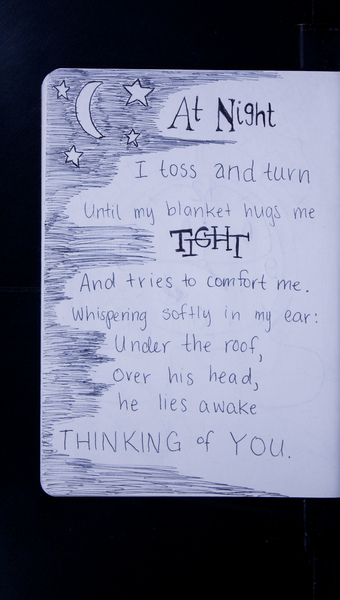 At Night
I toss and turn
Until my blanket hugs me
TIGHT
And tries to comfort me.
Whispering softly in my ear:
Under the roof,
Over his head,
he lies awake
THINKING of YOU.